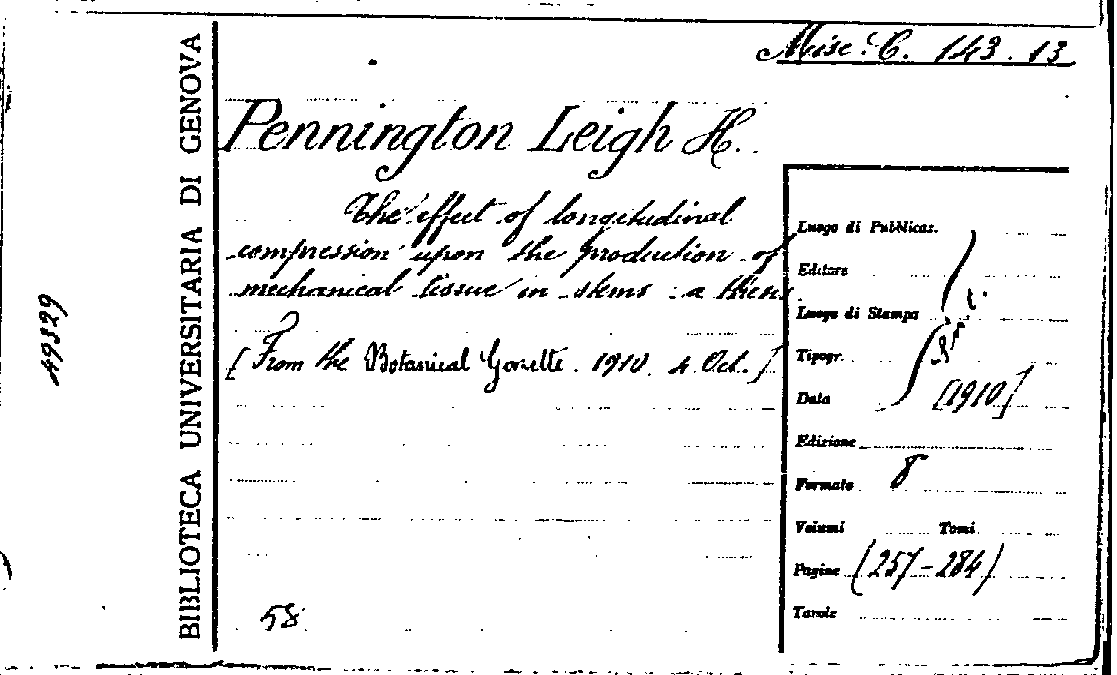 Misc. C. 143. 13
BIBLIOTECA UNIVERSITARIA DI GENOVA
49329
Pennington Leigh H.
The effect of longitudinal
compression upon the production of
mechanical tissue in stems : a thesis
[From the Botanical Gazette. 1910. 4 Oct.]
58
Luogo di Pubblicaz.
Editore
Luogo di Stampa
Tipogr.
Data [1910]
Edizione
Formato 8
Volumi Tomi
Pagine (257-284)
Tavole